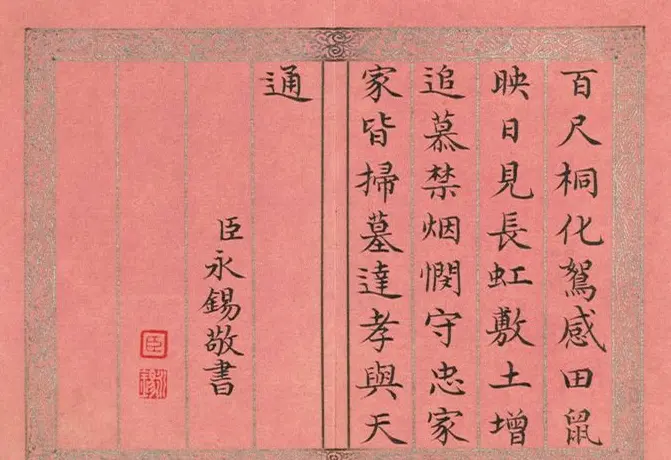 百尺桐化鴽感田鼠
映日見長虹敷土增
追慕禁烟憫守忠家
家皆掃墓達孝與天
通
臣永錫敬書
臣